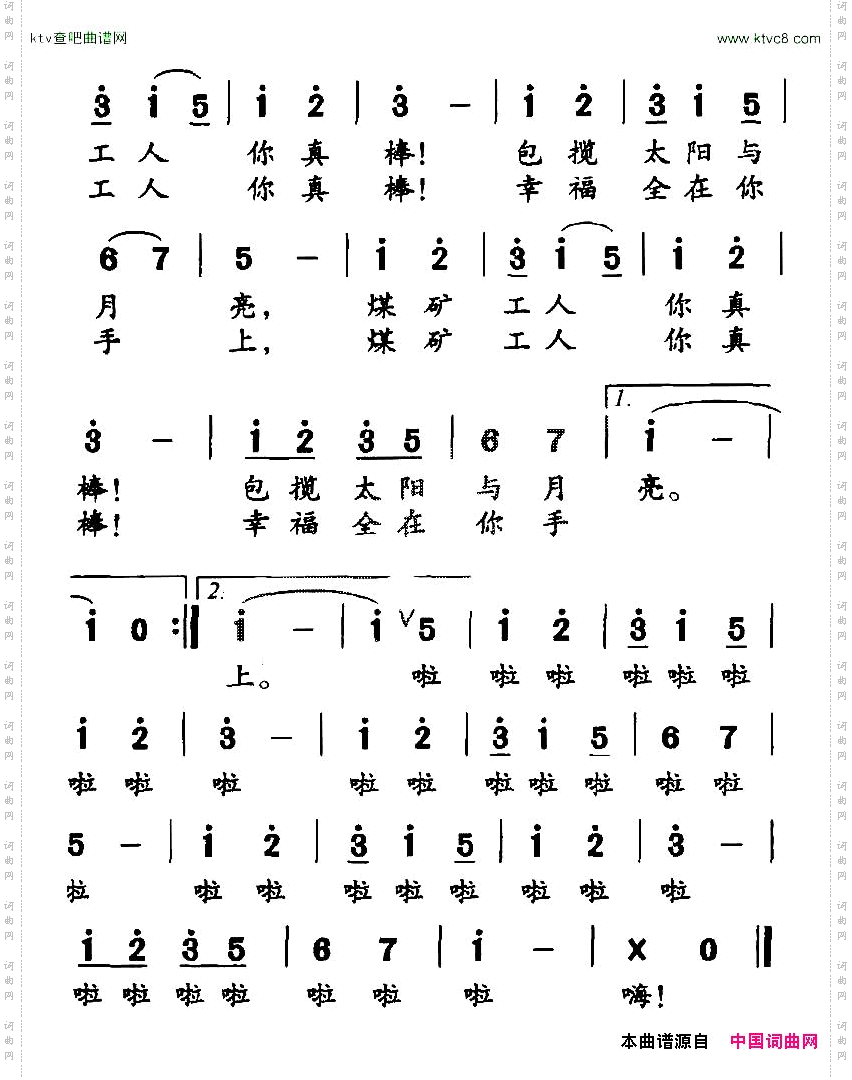 ktv查吧曲谱网 www.ktvc8.com
3 i 5 | i 2 | 3 － | i 2 | 3 i 5 |
工人 你真 棒! 包揽 太阳与
工人 你真 棒! 幸福 全在你
6 7 | 5 － | i 2 | 3 i 5 | i 2 |
月 亮, 煤矿 工人 你真
手 上, 煤矿 工人 你真
1.
3 － | i 2 3 5 | 6 7 | i － |
棒! 包揽太阳 与月 亮。
棒! 幸福全在 你手
2.
i 0 :| i － | i V 5 | i 2 | 3 i 5 |
上。 啦 啦啦 啦啦啦
i 2 | 3 － | i 2 | 3 i 5 | 6 7 |
啦啦 啦 啦啦 啦啦啦 啦啦
5 － | i 2 | 3 i 5 | i 2 | 3 － |
啦 啦啦 啦啦啦 啦啦 啦
i 2 3 5 | 6 7 | i － | X 0 ‖
啦啦啦啦 啦啦 啦 嗨!
本曲谱源自 中国词曲网